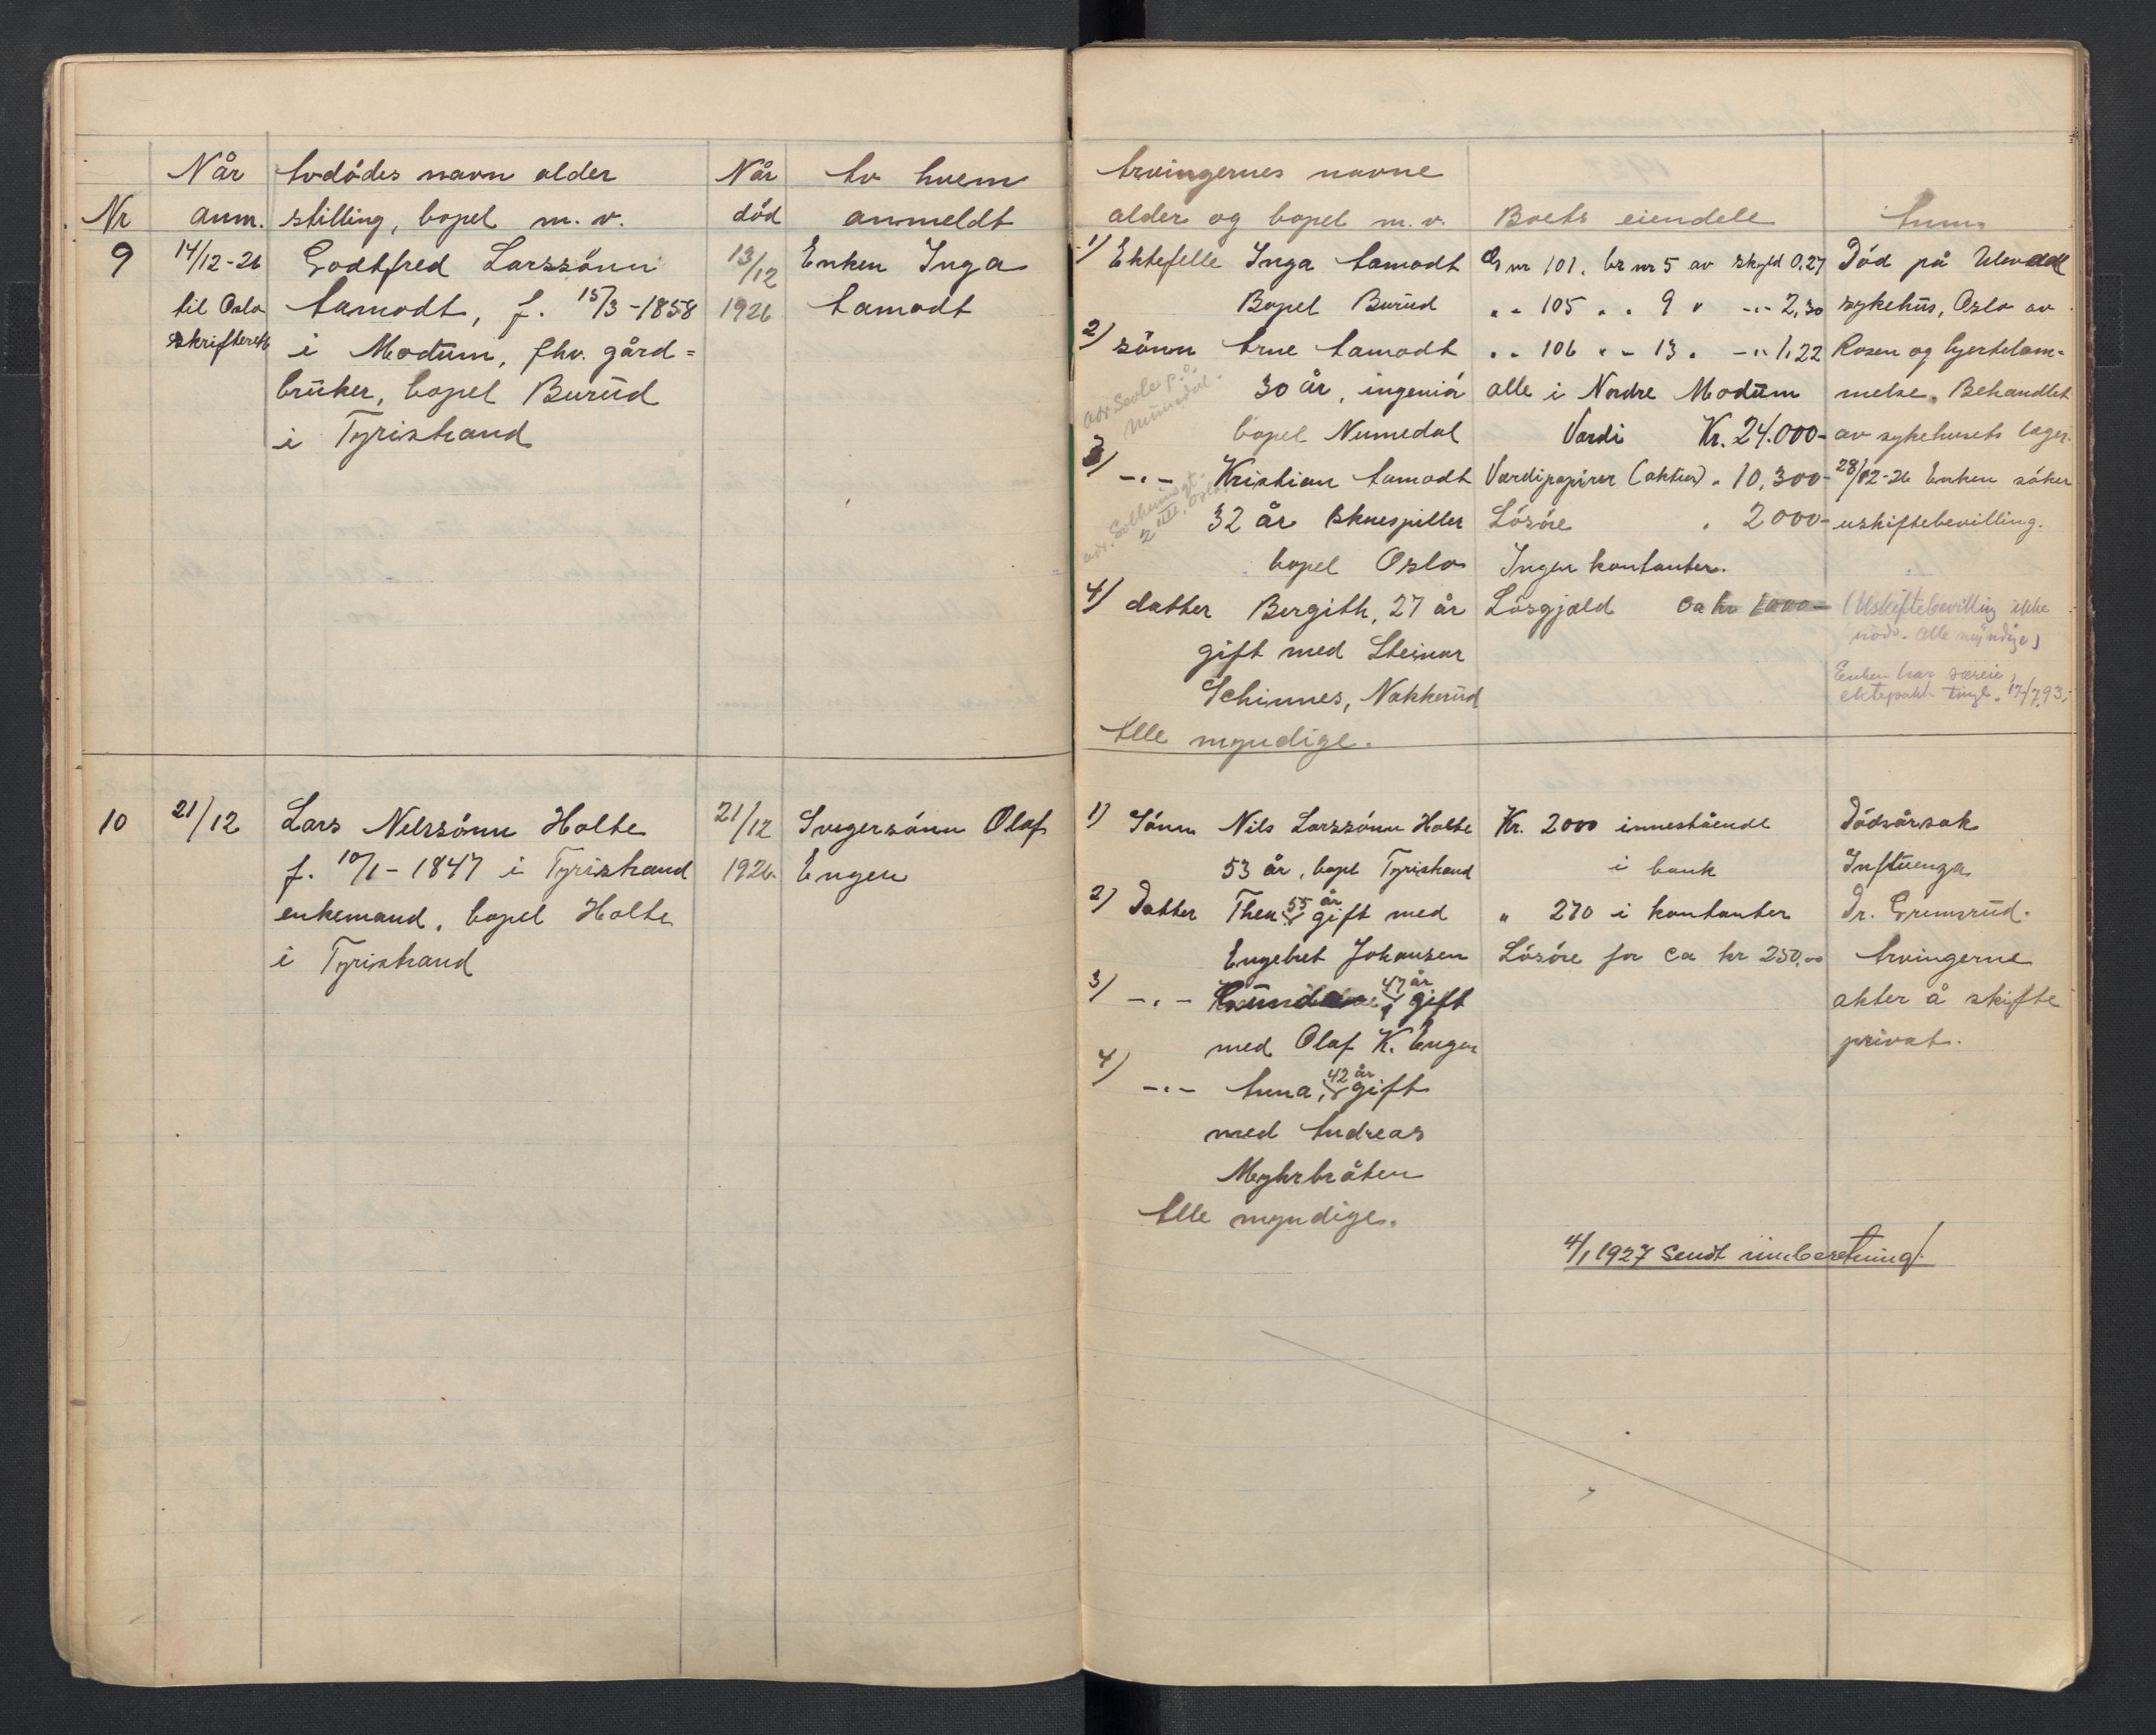 Når Avdödes navn alder Når Av hvem
Nr anm. stilling, bopel m. v. död anmeldt
9 14/12-26 Godtfred Larssönn 13/12 Enken Inga
til Oslo Aamodt, f. 15/3-1858 1926 Aamodt
skifterett i Modum, fhv. gård=
bruker, bopel Burud
i Tyristrand
10 21/12 Lars Nilssönn Holte 21/12 Svigersönn Olaf
f. 10/1-1847 i Tyristrand 1926. Engen
enkemand, bopel Holte
i Tyristrand
Arvingernes navne
alder og bopel m. v. Boets eiendele Anm.
1) Ektefelle Inga Aamodt
Bopel Burud
2) sönn Arne Aamodt
30 år, ingeniör
bopel Numedal
3) -"- Kristian Aamodt
32 år skuespiller
bopel Oslo
4) datter Bergith, 27 år
gift med Steinar
Schinnes, Nakkerud
Alle myndige.
G nr 101, br nr 5 av skyld 0.27
" " 105 " " 9 " -"- 2,30
" " 106 " " 13 " -"- 1,22
alle i Nordre Modum
Værdi Kr. 24.000-
Værdipapirer (aktier) " 10,300-
Lösöre " 2000-
Ingen kontanter.
Lösgjæld ca kr 1000-
Död på Ulevaal
sykehus, Oslo av
Rosen og hjertelam-
melse. Behandlet
av sykehusets læger.
28/12-26 Enken söker
uskiftebevilling.
(Uskiftebevilling ikke
nödv. Alle myndige)
Enken har særeie,
ektepakt tingl. 17/7.93.
1) Sönn Nils Larssönn Holte
53 år, bopel Tyristrand
2) Datter Thea, 55 år gift med
Engebret Johansen
3) -"- 47 år gift
med Olaf K. Engen
4) -"- Anna, 42 år gift
med Andreas
Myhrbråten
Alle myndige.
Kr. 2000 innestående
i bank
" 270 i kontanter
Lösöre for ca kr 250,00
Dödsårsak
Influenza
Dr. Grimsrud.
Arvingerne
akter å skifte
privat.
4/1 1927 sendt innberetning.